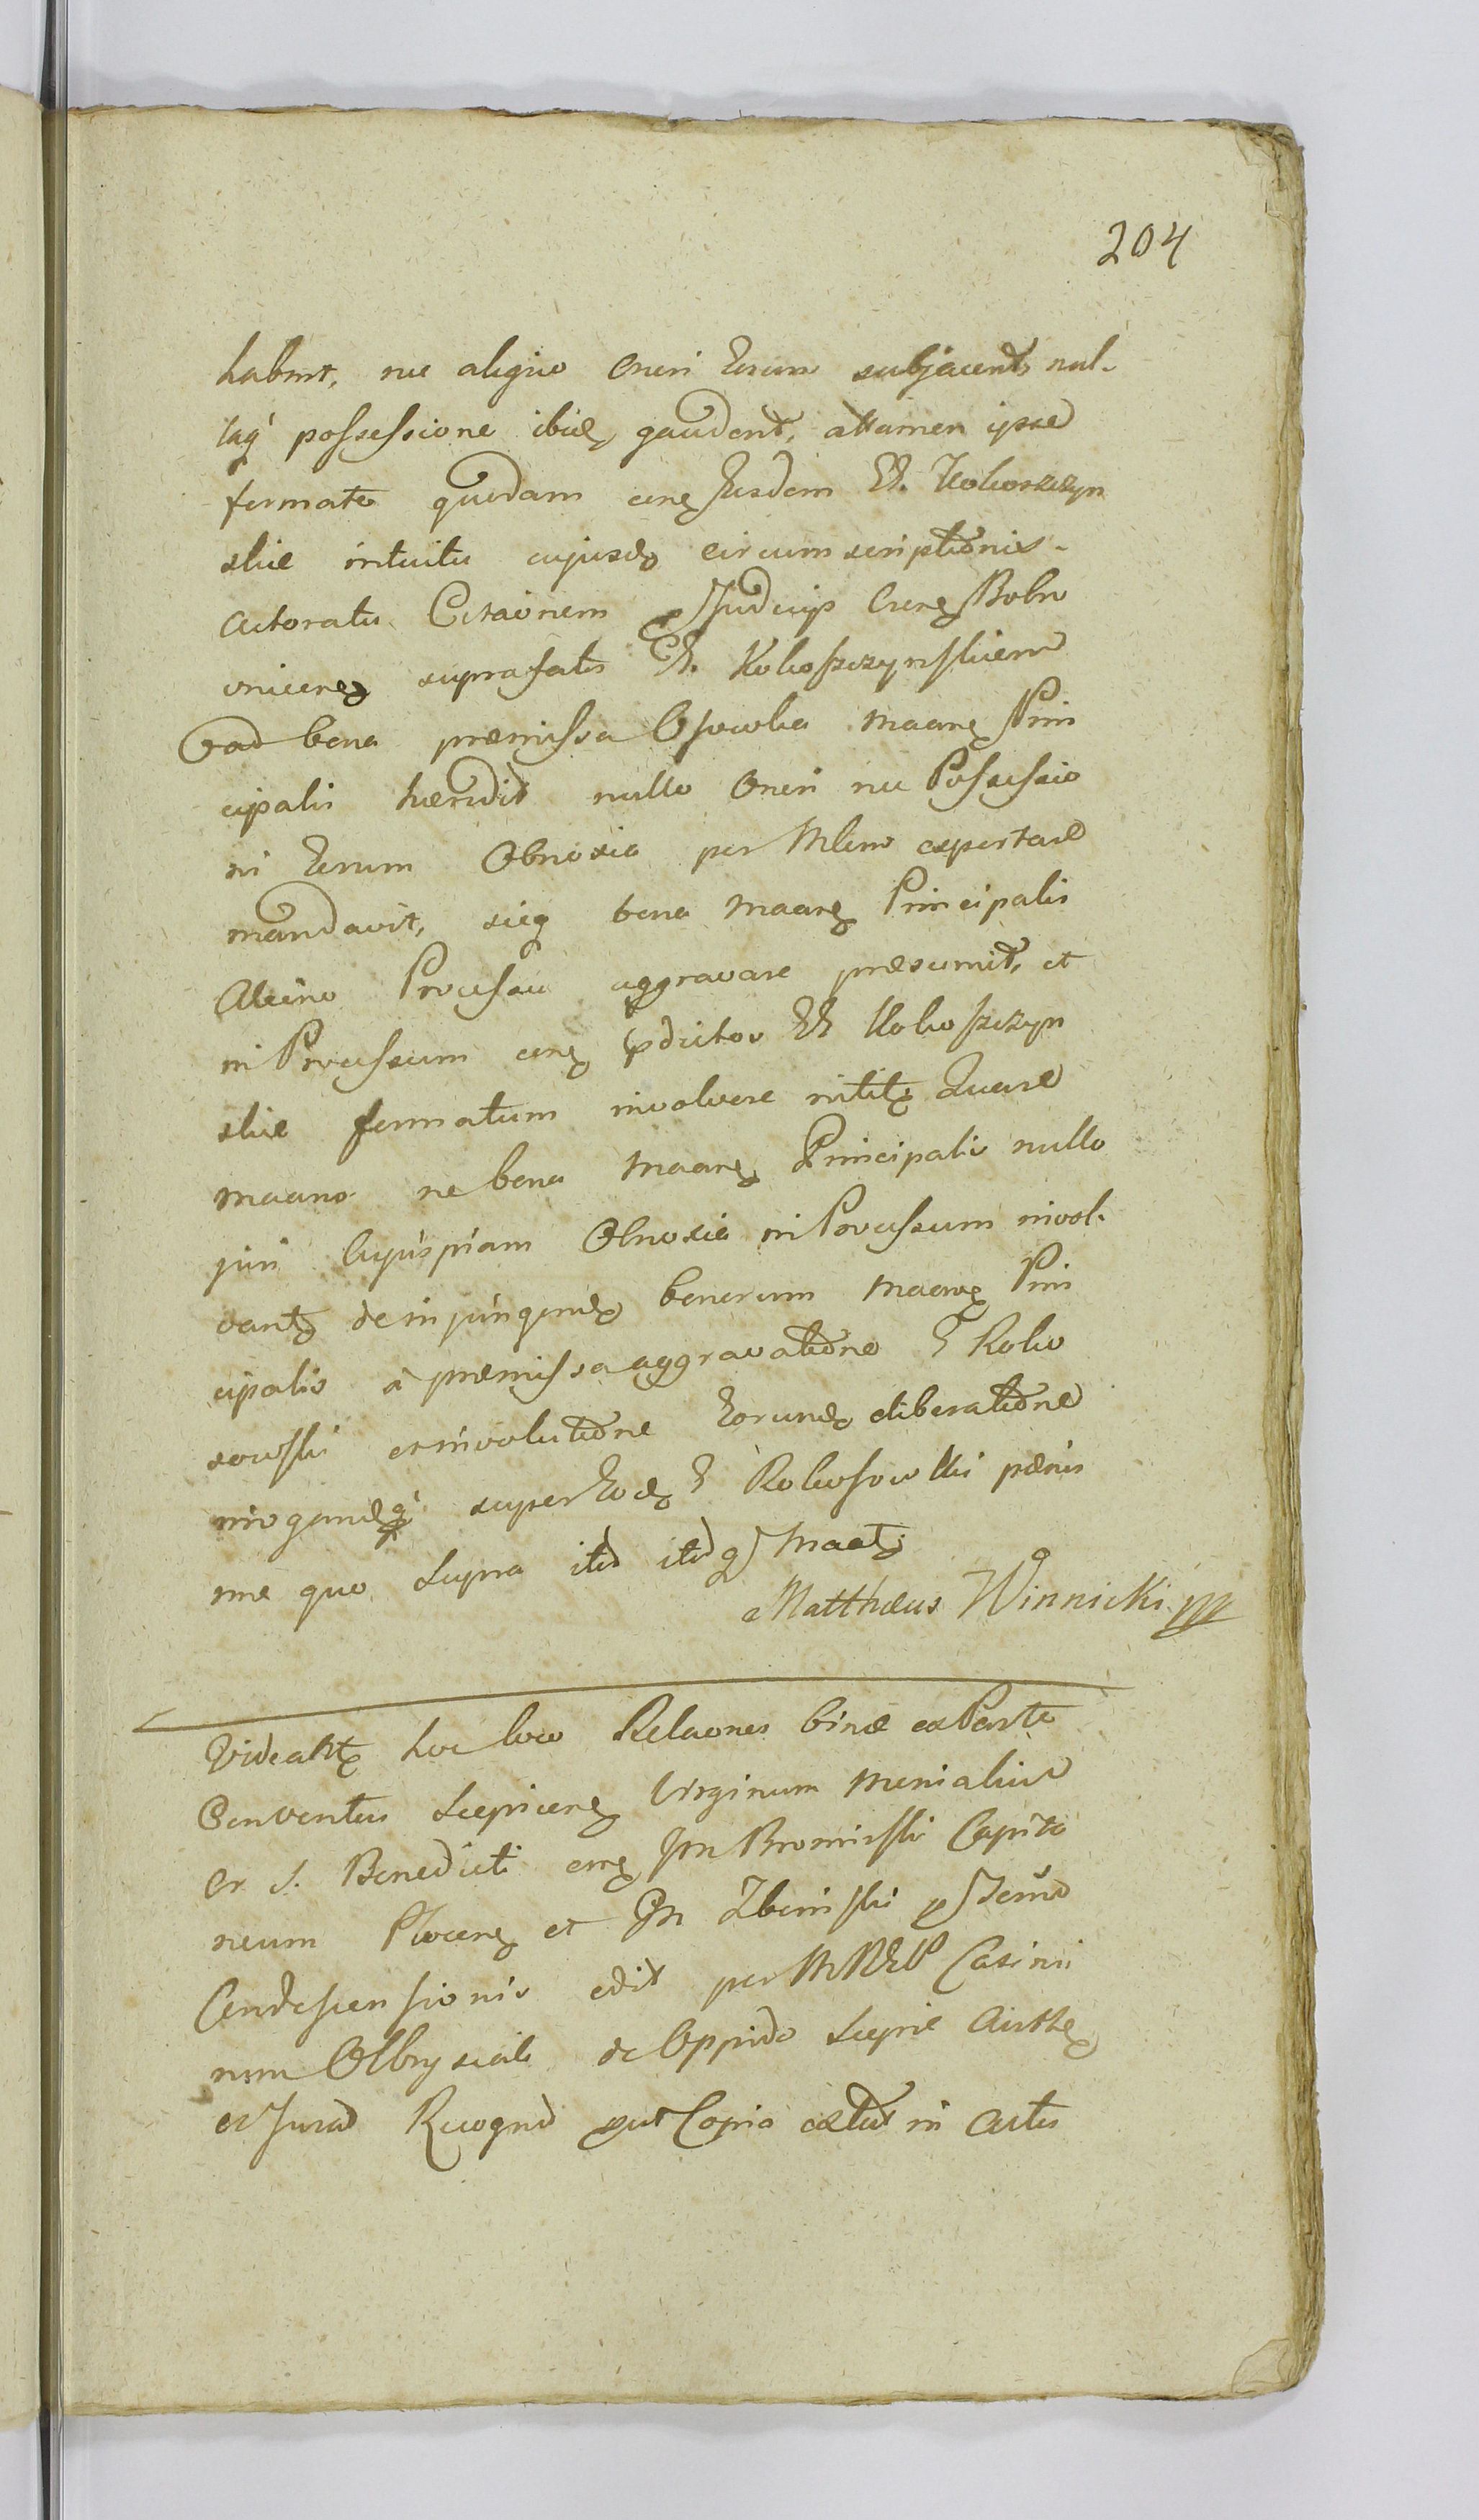 204
habent, nec aliquo Oneri Eorum subjacent, nul-
laq' possessione ibid, gaudent, attamen ipse
formato quodam conq Eosdem EE. Kokoszczyn
skie intuitu cujusdo circumscriptionis
Actoratu Citaonem p Judicijs Crens Bobro
vnicens suprafatis EE. Kokoszczynskiem
ad bona præmissa Osowka Maans Prin
cipalis hæredit nullo Oneri nec Possessio
ni Eorum Obnoxia per Mlem exportare
mandavit, sicq bona Maans Principalis
Alieno Processu aggravare præsumit, et
in Processum conq pdictos EE Kokoszczyn
skie formatum involvere nititr Quare
Maans ne bona Maans Principalis nullo
juri cujuspiam Obnoxia in Processum invol-
vantr de injungend bonorum Maans Prin
cipalis à præmissa aggravatione G Roko
sowski et involutione Eorund deliberatione
irrogandq' super Eod G Rokosowski pænis
me quo Supra itd itdq Maatr
Matthæus Winnicki mp
Videantr hoc loco Relaones binæ ex Parte
Conventus Sieprcens Virginum Monialium
Or S. Benedicti conq Jm Bromirski Capita
neum Plocens et Gm Zbinski p Termo
Condescensionis edit per MREP Casimi
rum Olbrysiak de Oppido Sieprc Authen
et Jurad Recognd prout Copia extat in Actis